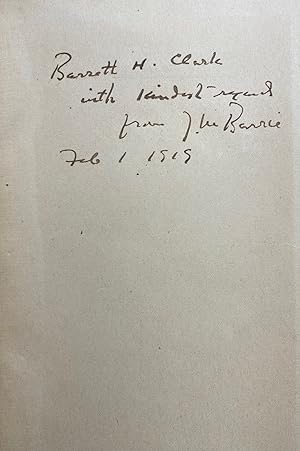 Barrett H. Clark
with kindest regards
from J. M Barrie
Feb 1 1919